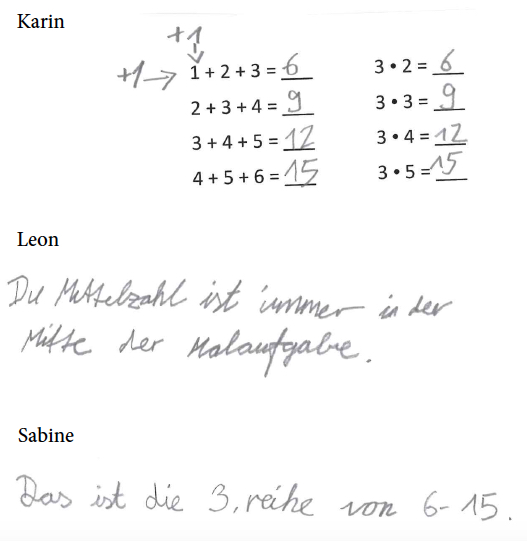 Karin
+1
+1 → 1 + 2 + 3 = 6 3 • 2 = 6
2 + 3 + 4 = 9 3 • 3 = 9
3 + 4 + 5 = 12 3 • 4 = 12
4 + 5 + 6 = 15 3 • 5 = 15
Leon
Die Mittelzahl ist immer in der
Mitte der Malaufgabe.
Sabine
Das ist die 3. reihe von 6-15.